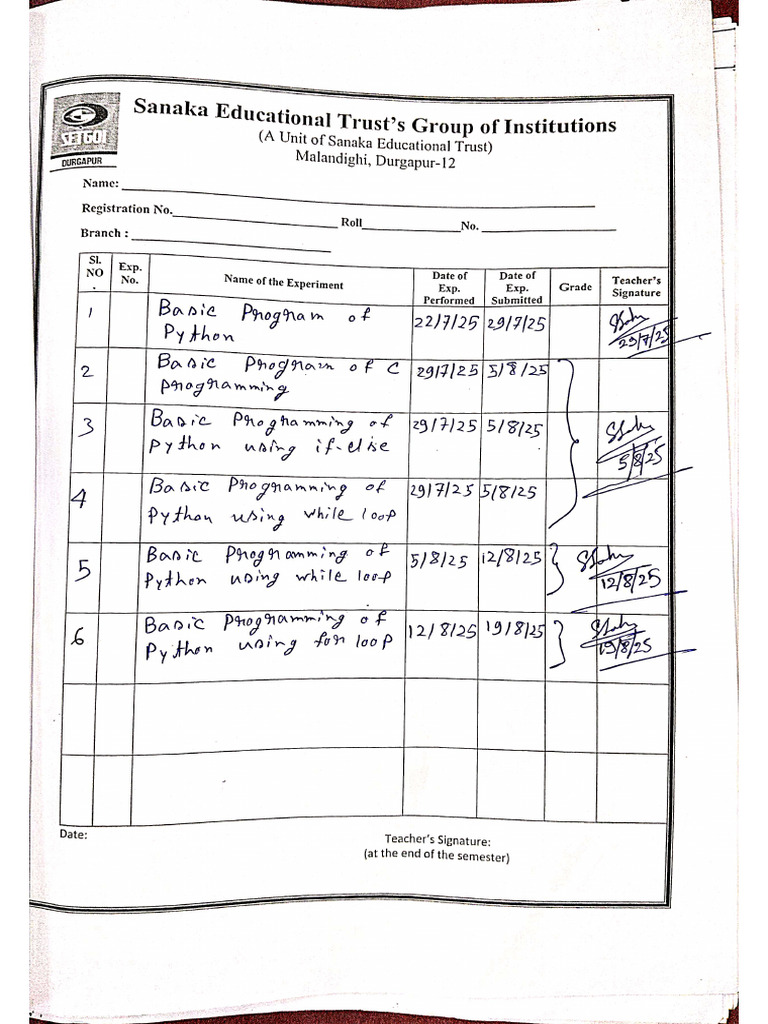 SETGOI
DURGAPUR
Sanaka Educational Trust's Group of Institutions
(A Unit of Sanaka Educational Trust)
Malandighi, Durgapur-12
Name:
Registration No. Roll No.
Branch :
Sl. NO . Exp. No. Name of the Experiment Date of Exp. Performed Date of Exp. Submitted Grade Teacher's Signature
1 Basic Program of 22/7/25 29/7/25
Python 29/7/25
2 Basic Program of C 29/7/25 5/8/25
Programming
3 Basic Programming of 29/7/25 5/8/25
Python using if-else 5/8/25
4 Basic Programming of 29/7/25 5/8/25
Python using while loop
5 Basic Programming of 5/8/25 12/8/25
Python using while loop 12/8/25
6 Basic Programming of 12/8/25 19/8/25
Python using for loop 19/8/25
Date:
Teacher's Signature:
(at the end of the semester)